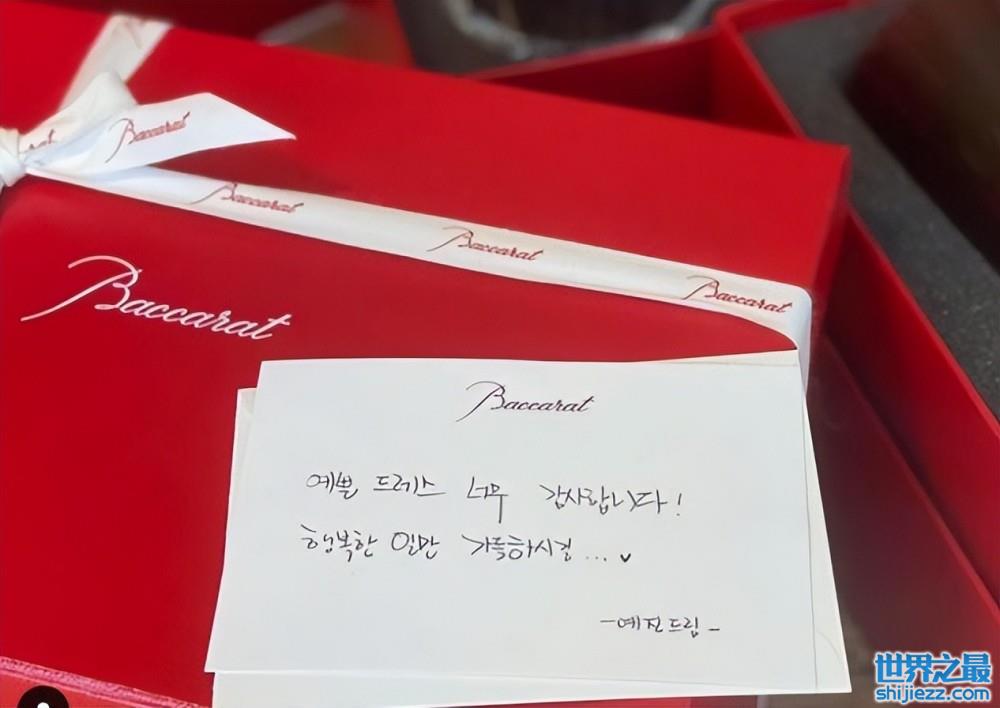 Baccarat
Baccarat
Baccarat
Baccarat
Baccarat
Baccarat
예쁜 드레스 너무 감사합니다!
행복한 일만 가득하시길...
-예진드림-
世界之最
shijiezz.com